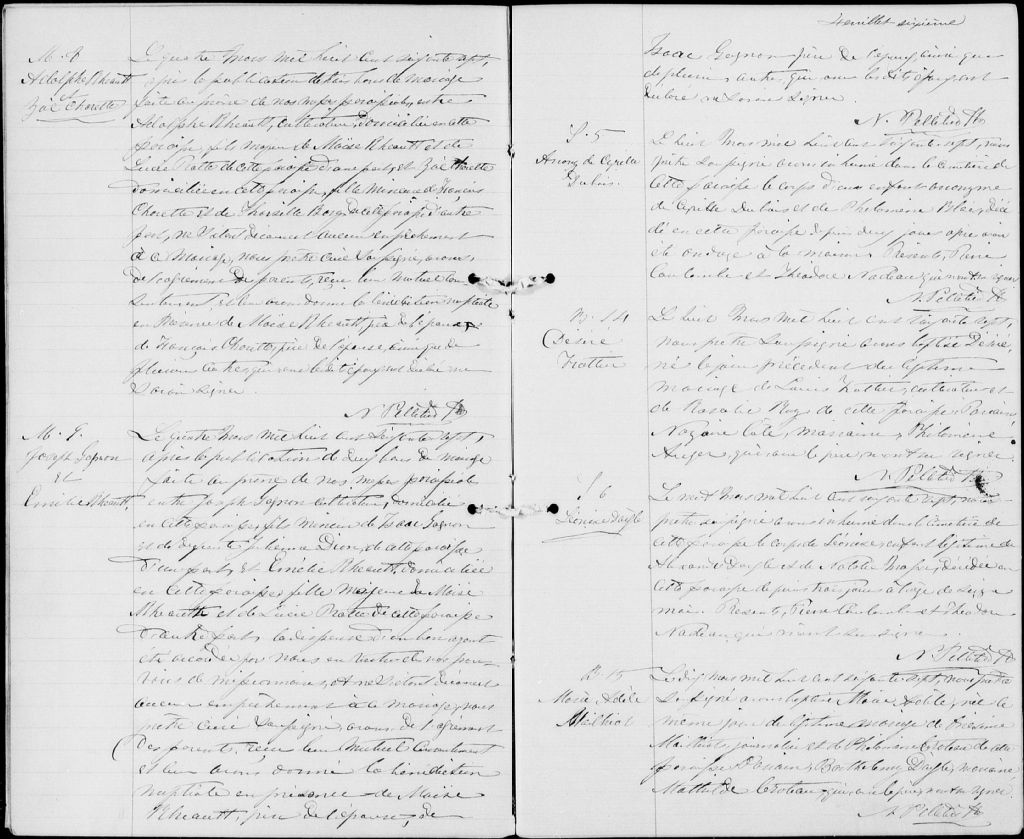 M. 8
Adolphe Rheault
&
Zoé Chorette
Le quatre Mars mil huit cent soixante sept,
après la publication de trois bans de mariage
faite au prône de nos messes paroissiales, entre
Adolphe Rheault, cultivateur, domicilié en cette
paroisse, fils majeur de Moïse Rheault et de
Lucie Pratte de cette paroisse d'une part; et Zoé Chorette
domiciliée en cette paroisse, fille mineure de François
Chorette et de de cette paroisse d'autre
part, ne s'étant découvert aucun empêchement
à ce mariage, nous prêtre curé soussigné, avons
de l'agrément des parents, reçu leur mutuel con-
sentement et leur avons donné la bénédiction nuptiale
en présence de Moïse Rheault, père de l'époux,
de François Chorette, père de l'épouse, ainsi que de
plusieurs autres qui avec lesdits époux ont déclaré ne
savoir signer.
N. Pelletier Ptre
M. 9.
Joseph Gagnon
et
Emélie Rheault,
Le quatre Mars mil huit cent soixante sept,
après la publication de deux bans de mariage
faite au prône de nos messes paroissiales
entre Joseph Gagnon cultivateur, domicilié
en cette paroisse, fils mineur de Isaac Gagnon
et de défunte Julienne Dion, de cette paroisse
d'une part; et Emélie Rheault, domiciliée
en cette paroisse, fille majeure de Moïse
Rheault et de Lucie Pratte de cette paroisse
d'autre part; la dispense d'un ban ayant
été accordée par nous en vertu de nos pou-
voirs de missionnaire, et ne s'étant découvert
aucun empêchement à ce mariage, nous
prêtre curé soussigné, avons de l'agrément
des parents, reçu leur mutuel consentement
et leur avons donné la bénédiction
nuptiale en présence de Moïse
Rheault, père de l'épouse, de
Feuillet sixième
Isaac Gagnon père de l'époux, ainsi que
de plusieurs autres qui avec lesdits époux ont
déclaré ne savoir signer.
N. Pelletier Ptre
S. 5
Anony. de Cyrille
Dubois.
Le huit Mars mil huit cent soixante sept, nous
prêtre soussigné avons inhumé dans le cimetière de
cette paroisse le corps d'un enfant anonyme
de Cyrille Dubois et de Philomène Blais, décé-
dé en cette paroisse depuis deux jours après avoir
été ondoyé à la maison. Présents, Pierre
et Théodore Nadeau qui n'ont su signer
N. Pelletier Ptre
B. 14
Désiré
Trottier
Le huit Mars mil huit cent soixante sept,
nous prêtre soussigné avons baptisé Désiré,
né le jour précédent du légitime
mariage de Louis Trottier, cultivateur et
de Rosalie Roy de cette paroisse. Parrain,
Nazaire Côté, marraine, Philomène
Auger, qui avec le père n'ont su signer.
N. Pelletier Ptre
S. 6
Léonise Daigle
Le neuf Mars mil huit cent soixante sept, nous
prêtre soussigné avons inhumé dans le cimetière de
cette paroisse le corps de Léonise, enfant légitime de
Alexandre Daigle et de Natalie décédée en
cette paroisse depuis trois jours à l'âge de seize
mois. Présents, Pierre et Théodore
Nadeau qui n'ont su signer.
N. Pelletier Ptre
B. 15
Marie Adèle
Mailhiot
Le dix Mars mil huit cent soixante sept, nous prêtre
soussigné avons baptisé Marie Adèle, née le
même jour du légitime mariage de
Mailhiot, journalier et de Philomène de cette
paroisse. Parrain, Barthelemy Daigle, marraine,
Mathilde qui avec le père n'ont su signer.
N. Pelletier Ptre